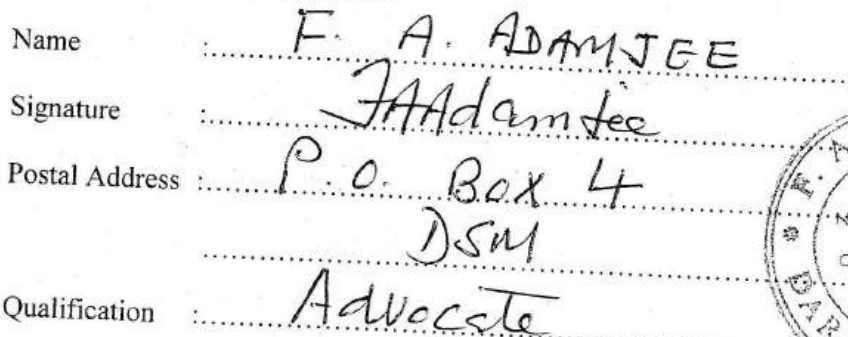 Name : F. A. ADAMJEE
Signature : FAAdamjee
Postal Address : P.O. Box 4
DSM
Qualification : Advocate
F. A
DAR